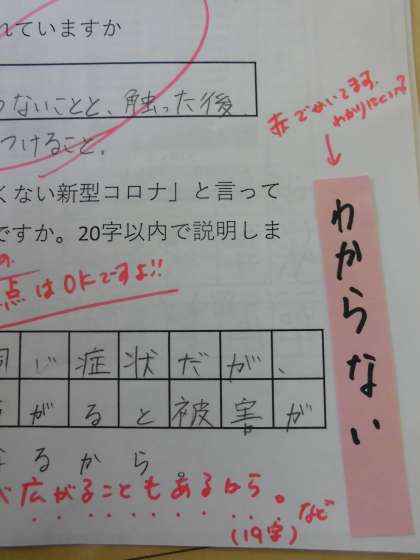 れていますか
ないことと、触った後
つけること。
赤でかいてます。
わかりにくい?
くない新型コロナ」と言って
ですか。20字以内で説明しま
点はOKですよ!!
わからない
同じ症状だが、
がると被害が
るから
広がることもあるから。
(19字)
など